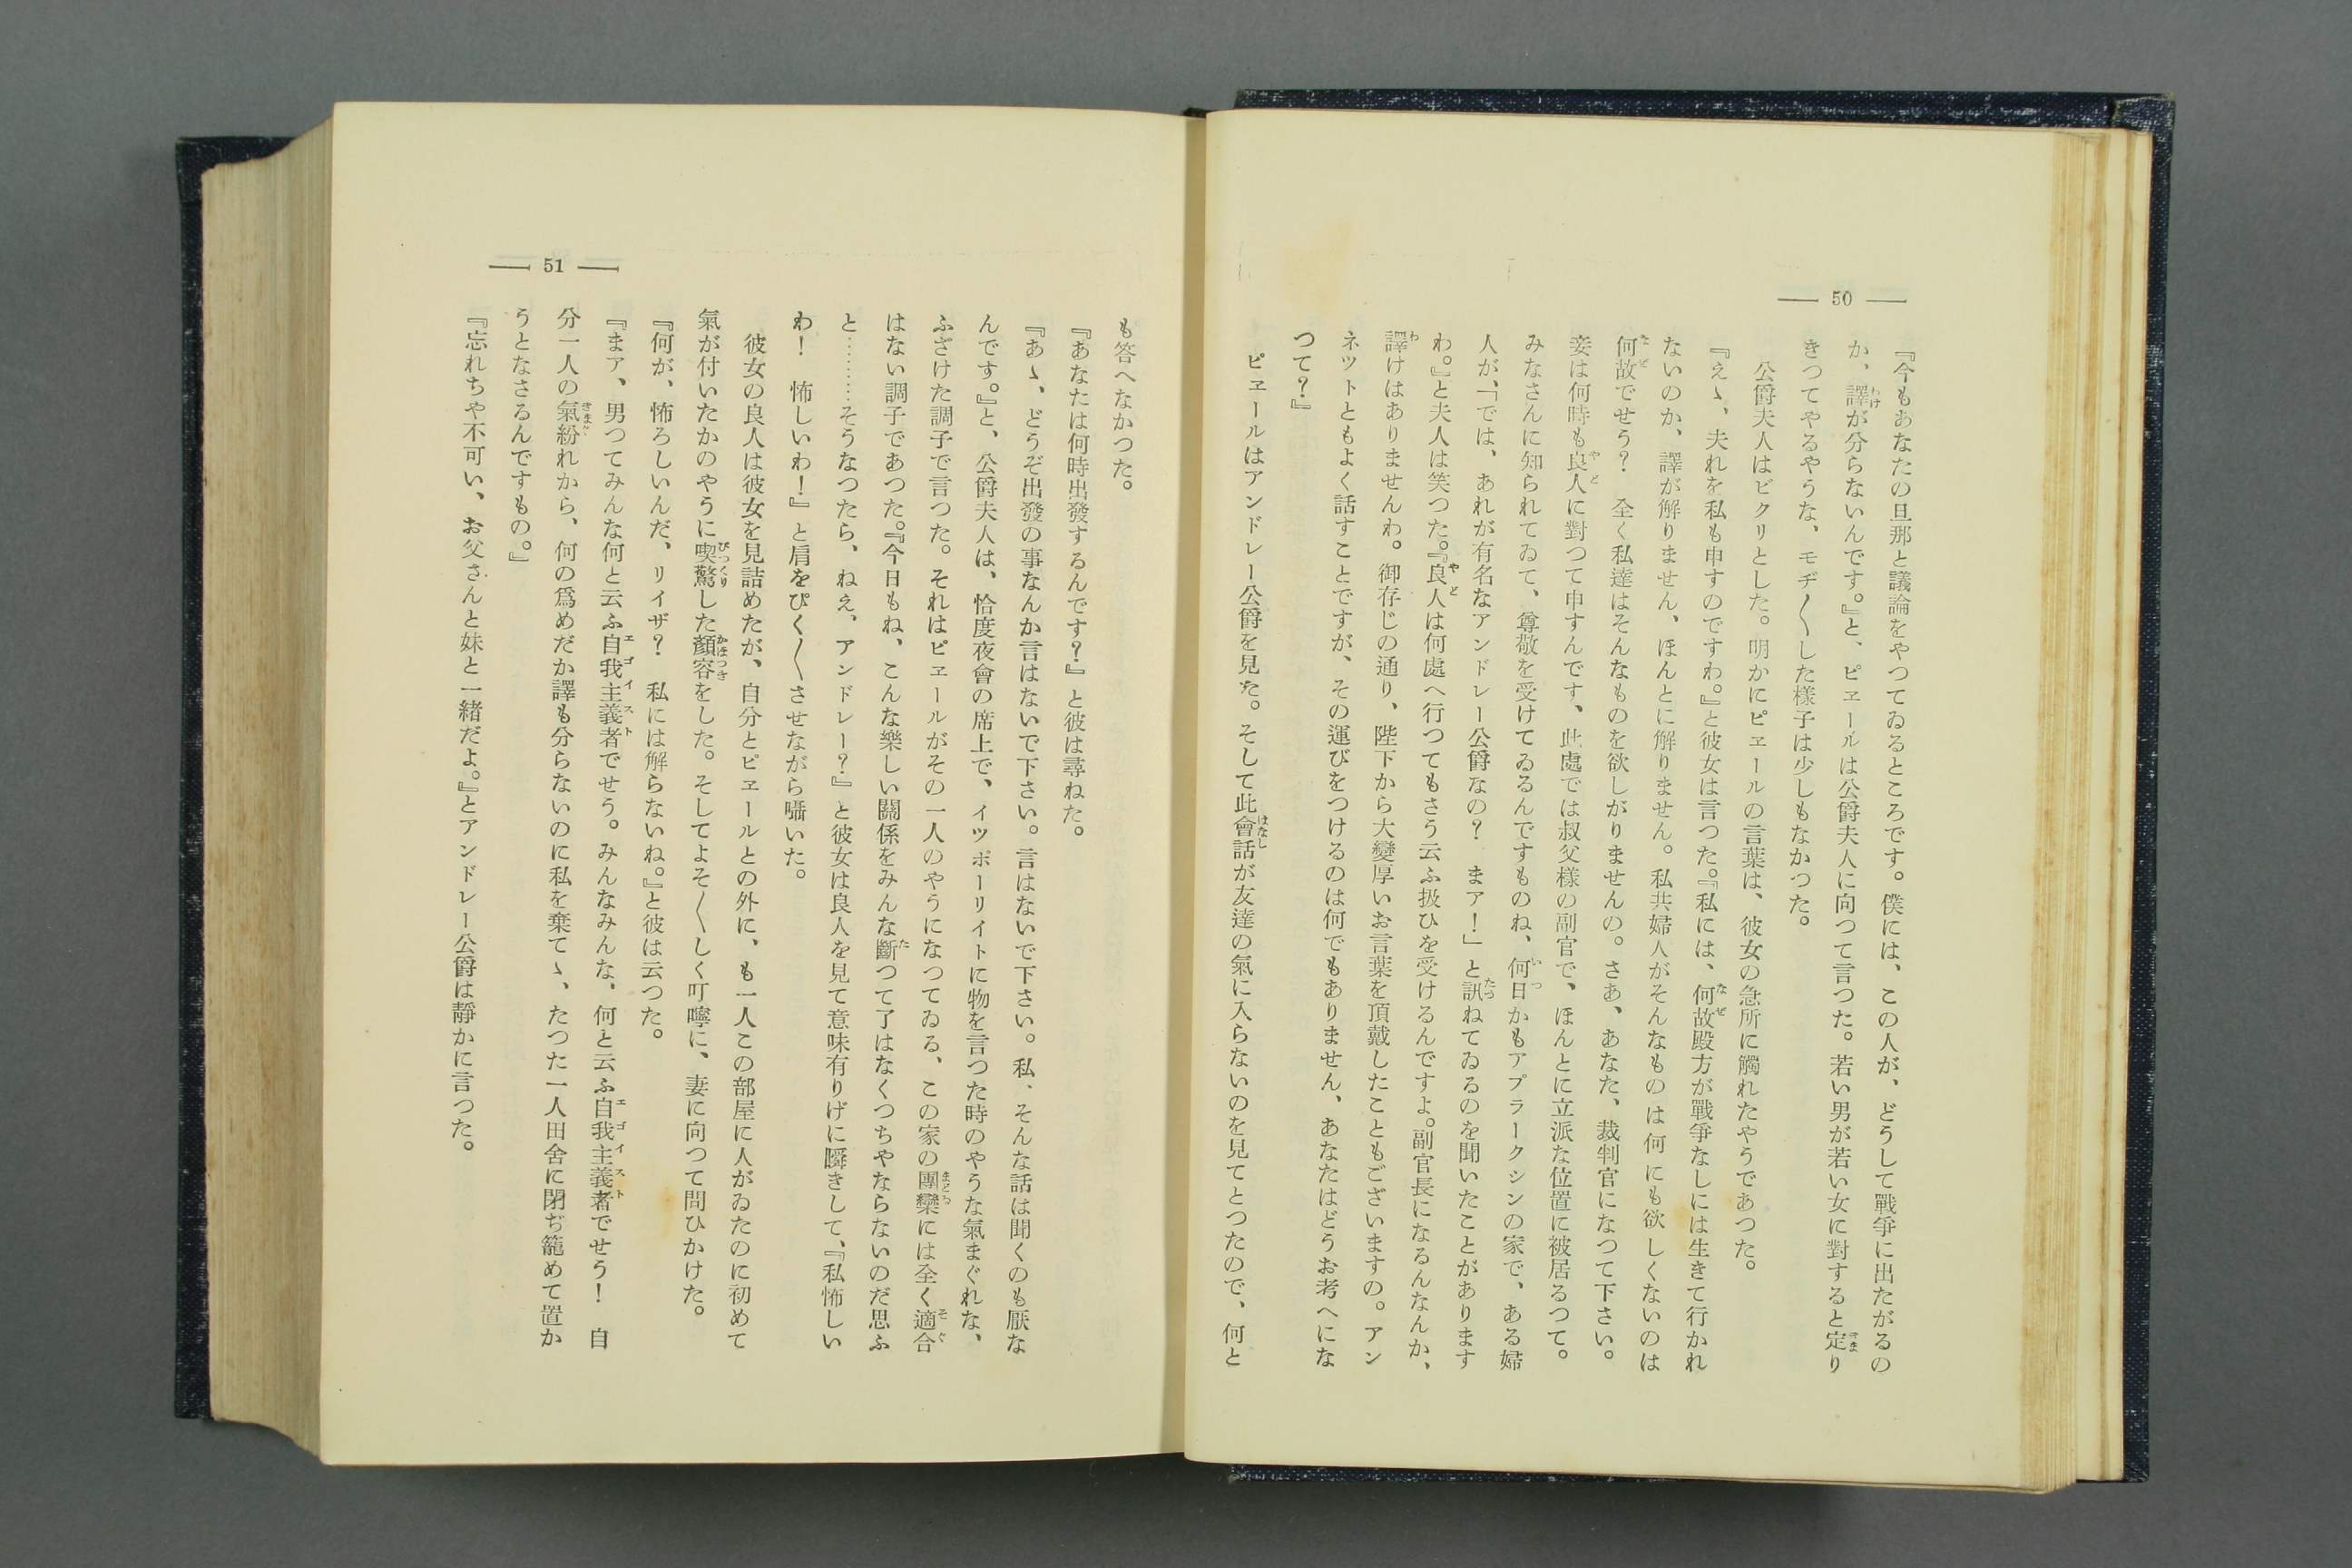 — 50 —
『今もあなたの旦那と議論をやつてゐるところです。僕には、この人が、どうして戰爭に出たがるの
か、譯が分らないんです。』と、ピエールは公爵夫人に向つて言つた。若い男が若い女に對すると定り
きつてやるやうな、モヂ〳〵した樣子は少しもなかつた。
公爵夫人はビクリとした。明かにピエールの言葉は、彼女の急所に觸れたやうであつた。
『えゝ、夫れを私も申すのですわ。』と彼女は言つた。『私には、何故殿方が戰爭なしには生きて行かれ
ないのか、譯が解りません、ほんとに解りません。私共婦人がそんなものは何にも欲しくないのは
何故でせう？　全く私達はそんなものを欲しがりませんの。さあ、あなた、裁判官になつて下さい。
妾は何時も良人に對つて申すんです、此處では叔父樣の副官で、ほんとに立派な位置に被居るつて。
みなさんに知られてゐて、尊敬を受けてゐるんですものね、何日かもアプラークシンの家で、ある婦
人が、「では、あれが有名なアンドレー公爵なの？　まア！」と訊ねてゐるのを聞いたことがあります
わ。』と夫人は笑つた。『良人は何處へ行つてもさう云ふ扱ひを受けるんですよ。副官長になるんなんか、
譯けはありませんわ。御存じの通り、陛下から大變厚いお言葉を頂戴したこともございますの。アン
ネツトともよく話すことですが、その運びをつけるのは何でもありません、あなたはどうお考へにな
つて？』
ピエールはアンドレー公爵を見た。そして此會話が友達の氣に入らないのを見てとつたので、何と
— 51 —
も答へなかつた。
『あなたは何時出發するんです？』と彼は尋ねた。
『あゝ、どうぞ出發の事なんか言はないで下さい。言はないで下さい。私、そんな話は聞くのも厭な
んです。』と、公爵夫人は、恰度夜會の席上で、イツポーリイトに物を言つた時のやうな氣まぐれな、
ふざけた調子で言つた。それはピエールがその一人のやうになつてゐる、この家の團欒には全く適合
はない調子であつた。『今日もね、こんな樂しい關係をみんな斷つて了はなくつちやならないのだ思ふ
と………そうなつたら、ねえ、アンドレー？』と彼女は良人を見て意味有りげに瞬きして、『私怖しい
わ！　怖しいわ！』と肩をぴく〳〵させながら囁いた。
彼女の良人は彼女を見詰めたが、自分とピエールとの外に、も一人この部屋に人がゐたのに初めて
氣が付いたかのやうに喫驚した顏容をした。そしてよそ〳〵しく叮嚀に、妻に向つて問ひかけた。
『何が、怖ろしいんだ、リイザ？　私には解らないね。』と彼は云つた。
『まア、男つてみんな何と云ふ自我主義者でせう。みんなみんな、何と云ふ自我主義者でせう！　自
分一人の氣紛れから、何の爲めだか譯も分らないのに私を棄てゝ、たつた一人田舍に閉ぢ籠めて置か
うとなさるんですもの。』
『忘れちや不可い、お父さんと妹と一緒だよ。』とアンドレー公爵は靜かに言つた。